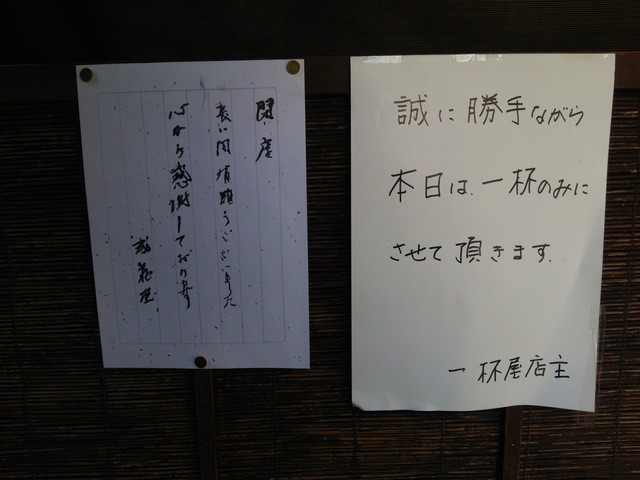 閉店
長い間有難うございました
心から感謝しております
誠に勝手ながら
本日は、一杯のみに
させて頂きます.
一杯屋店主